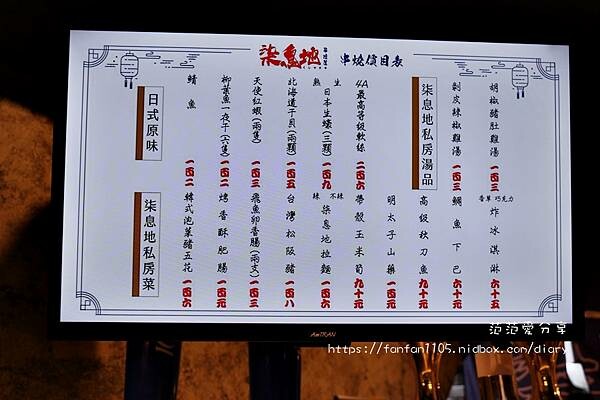 柒息地 串燒價目表
柒息地私房湯品
胡椒豬肚雞湯 一四三
剝皮辣椒雞湯 一四三
日式原味
4A最高等級軟絲 二四六
生 熟
日本生蠔(三顆) 一四九
北海道干貝(兩顆) 一四五
天使紅蝦(兩隻) 一四三
柳葉魚一夜干(六隻) 一四二
鯖魚 一四二
柒息地私房菜
香草 巧克力
炸冰淇淋 六十五
鯛魚下巴 六十元
高級秋刀魚 九十元
明太子山藥 一四元
帶殼玉米筍 九十元
不辣 辣
柒息地拉麵 一四六
台灣松阪豬 一四八
飛魚卵香腸(兩支) 一四三
烤香酥肥腸 一四元
韓式泡菜豬五花 一四六
AmTRAN
泡泡愛分享
https://fanfan1105.nidbox.com/diary